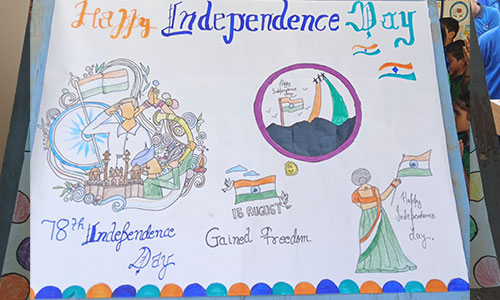 Happy Independence Day
Happy
Independence
day
15 AUGUST
78th Independence
Day
Gained Freedom.
Happy
Independence
day.